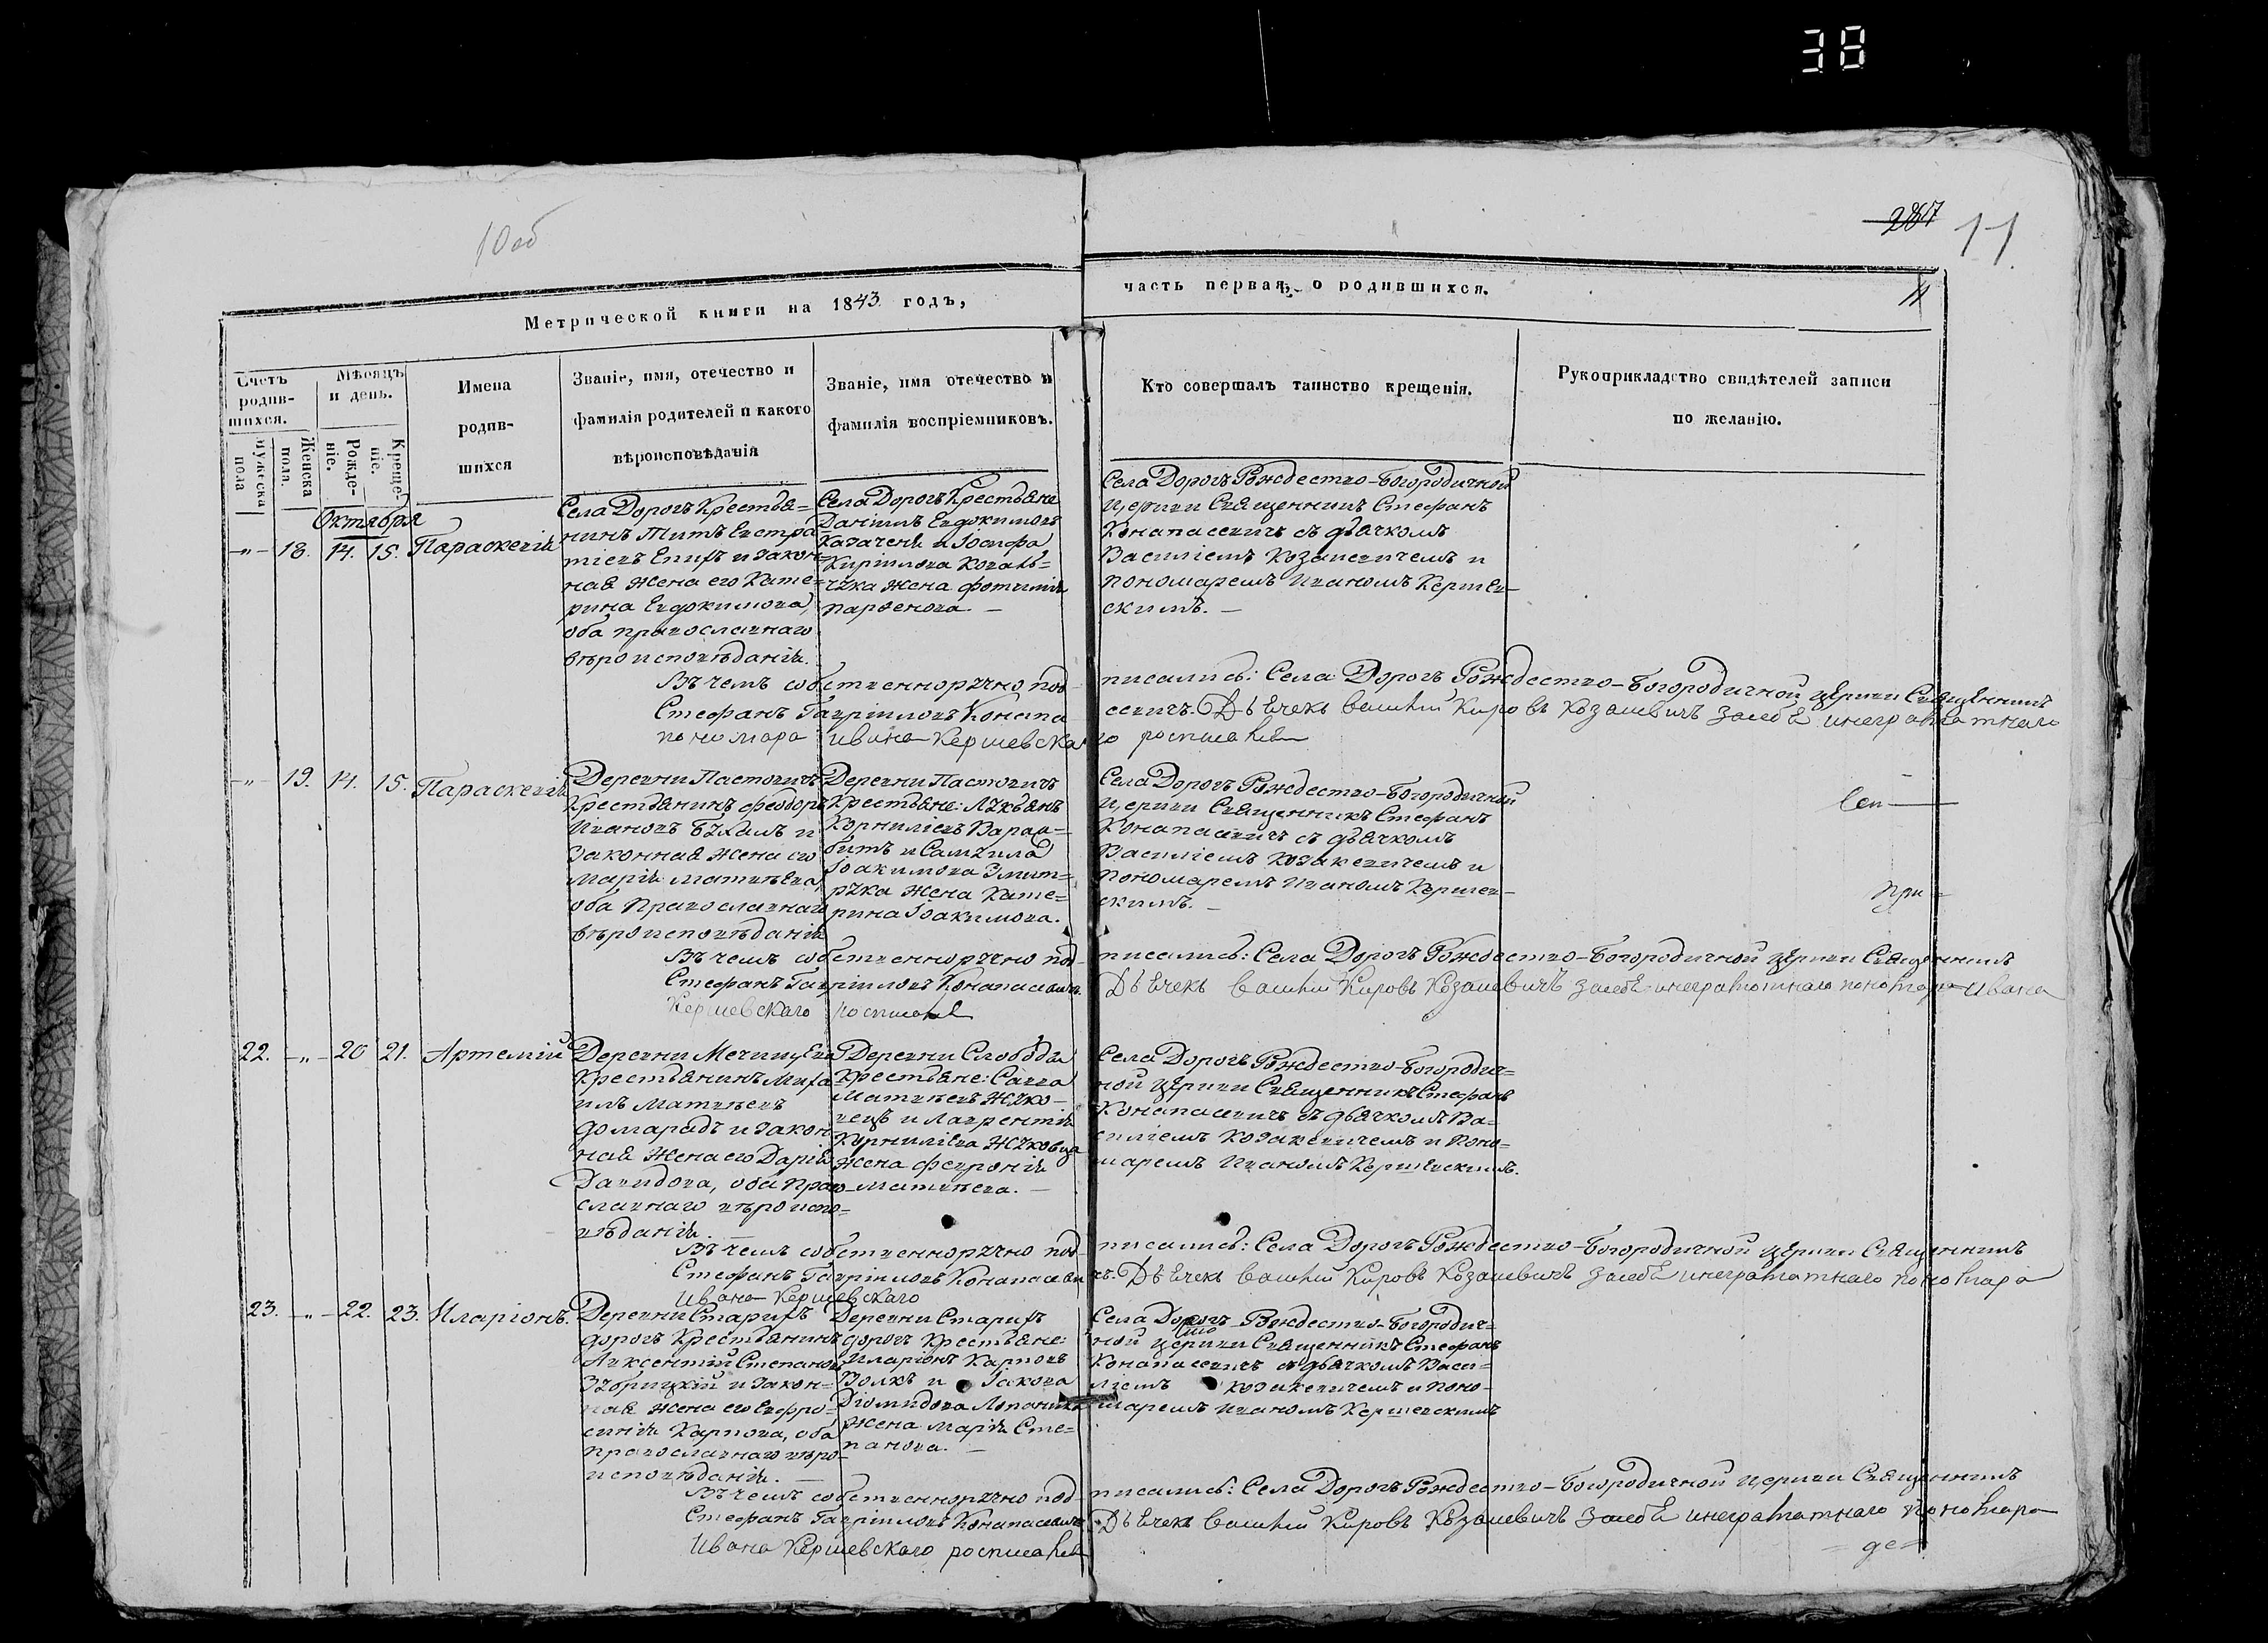 38
10 об
287 11
Метрической книги на 1843 годъ,
часть первая, о родившихся.
11
Счетъ родив-шихся.
Мѣсяцъ и день.
Имена родив-шихся
Званіе, имя, отечество и
фамилія родителей и какого
вѣроисповѣданія
Званіе, имя отечество и
фамилія воспріемниковъ.
Кто совершалъ таинство крещенія.
Рукоприкладство свидѣтелей записи
по желанію.
Мужеска пола
Женска пола.
Рожде-ніе.
Креще-ніе.
Октября
-„- 18. 14. 15. Параскевія
Села Дорогъ Крестья=
нинъ Титъ Евстра
тіевъ и закон=
ная жена его Кате=
рина Евдокимова,
оба православнаго
вѣроисповѣданія.
Села Дорогъ Крестьяне
Даніилъ Евдокимовъ
и Іосифа
Кирилова Коваль=
чука жена Фотинія
Парѳенова. —
Села Дорогъ Рождество-Богородичной
церкви Священникъ Стефанъ
Конапасевичъ съ дьячкомъ
Василіемъ Козакевичемъ и
пономаремъ Иваномъ Кершев-
скимъ. —
Въ чемъ собственноручно под-
писались: Села Дорогъ Рождество-Богородичной церкви Священникъ
Стефанъ Гавріиловъ Конапа
севичъ. Дьячекъ Василій Кировъ Козакевичъ за себя и неграматнаго
пономара Ивана Кершевска
го росписался
-„- 19. 14. 15. Параскевія
Деревни Пастовичъ
Крестьянинъ Феодоръ
Ивановъ и
законная жена его
Марія Матвѣева,
оба православнаго
вѣроисповѣданія
Деревни Пастовичъ
Крестьяне: Лукьянъ
Корниліевъ
и Самуила
Іоакимова Змит=
рука жена Кате=
рина Іоакимова.
Села Дорогъ Рождество-Богородичной
церкви Священникъ Стефанъ
Конапасевичъ съ дьячкомъ
Василіемъ Козакевичемъ и
пономаремъ Иваномъ Кершев-
скимъ. —
Сви—
при=
Въ чемъ собственноручно под-
писались: Села Дорогъ Рождество-Богородичной церкви Священникъ
Стефанъ Гавріиловъ Конапасевичъ.
Дьячекъ Василій Кировъ Козакевичъ за себя и неграматнаго пономара Ивана
Кершевскаго росписался
22. -„- 20 21. Артемій
Деревни
Крестьянинъ Миха
илъ Матвѣевъ
Домарадъ и закон
ная жена его Дарія
Давидова, оба право-
славнаго вѣроиспо=
вѣданія. —
Деревни Слобода
Крестьяне: Савва
Матвѣевъ Жуко-
вецъ и Лаврентія
Корниліева Жуковца
жена Февронія
Матвѣева. —
Села Дорогъ Рождество-Богородич=
ной церкви Священникъ Стефанъ
Конапасевичъ съ дьячкомъ Ва=
силіемъ Козакевичемъ и поно=
маремъ Иваномъ Кершевскимъ.
Въ чемъ собственноручно под-
писались: Села Дорогъ Рождество-Богородичной церкви Священникъ
Стефанъ Гавріиловъ Конапасеви
чъ. Дьячекъ Василій Кировъ Козакевичъ за себя и неграматнаго пономара
Ивана Кершевскаго
23. -„- 22. 23. Иларіонъ.
Деревни Старихъ
дорогъ Крестьянинъ
Авксентій Степановъ
Збрицкій и закон=
ная жена его Евфро=
синія Карпова, оба
православнаго вѣро-
исповѣданія. —
Деревни Старихъ
дорогъ Крестьяне:
Иларіонъ Карповъ
Волкъ и Іакова
Діомидова
жена Марія Сте=
панова. —
Села Дорогъ Рождество-Богородич=
ной церкви Священникъ Стефанъ
Конапасевичъ съ дьячкомъ Васи=
ліемъ Козакевичемъ и поно-
маремъ Иваномъ Кершевскимъ
Въ чемъ собственноручно под-
писались: Села Дорогъ Рождество-Богородичной церкви Священникъ
Стефанъ Гавріиловъ Конапасевичъ
Дьячекъ Василій Кировъ Козакевичъ за себя и неграматнаго пономара
Ивана Кершевскаго росписался
= де=